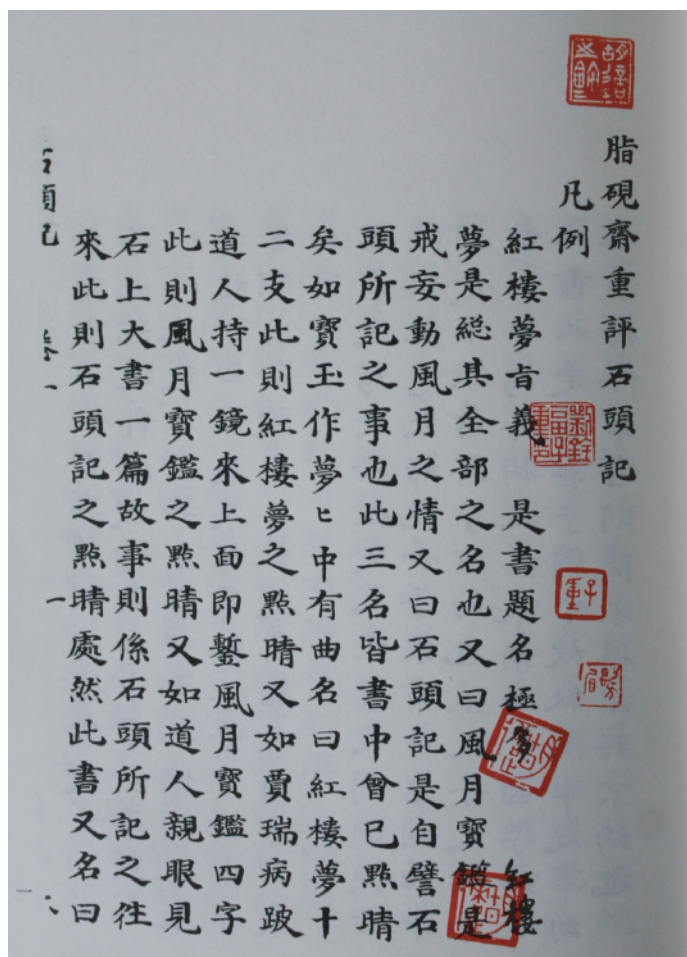 脂硯齋重評石頭記
凡例
紅樓夢旨義 是書題名極多 紅樓
夢是総其全部之名也又曰風月寶鑑是
戒妄動風月之情又曰石頭記是自譬石
頭所記之事也此三名皆書中曾已點晴
矣如寶玉作夢ヒ中有曲名曰紅樓夢十
二支此則紅樓夢之點晴又如賈瑞病跛
道人持一鏡來上面即鏨風月寶鑑四字
此則風月寶鑑之點晴又如道人親眼見
石上大書一篇故事則係石頭所記之往
來此則石頭記之點晴處然此書又名曰
石頭記 卷一 一
子重